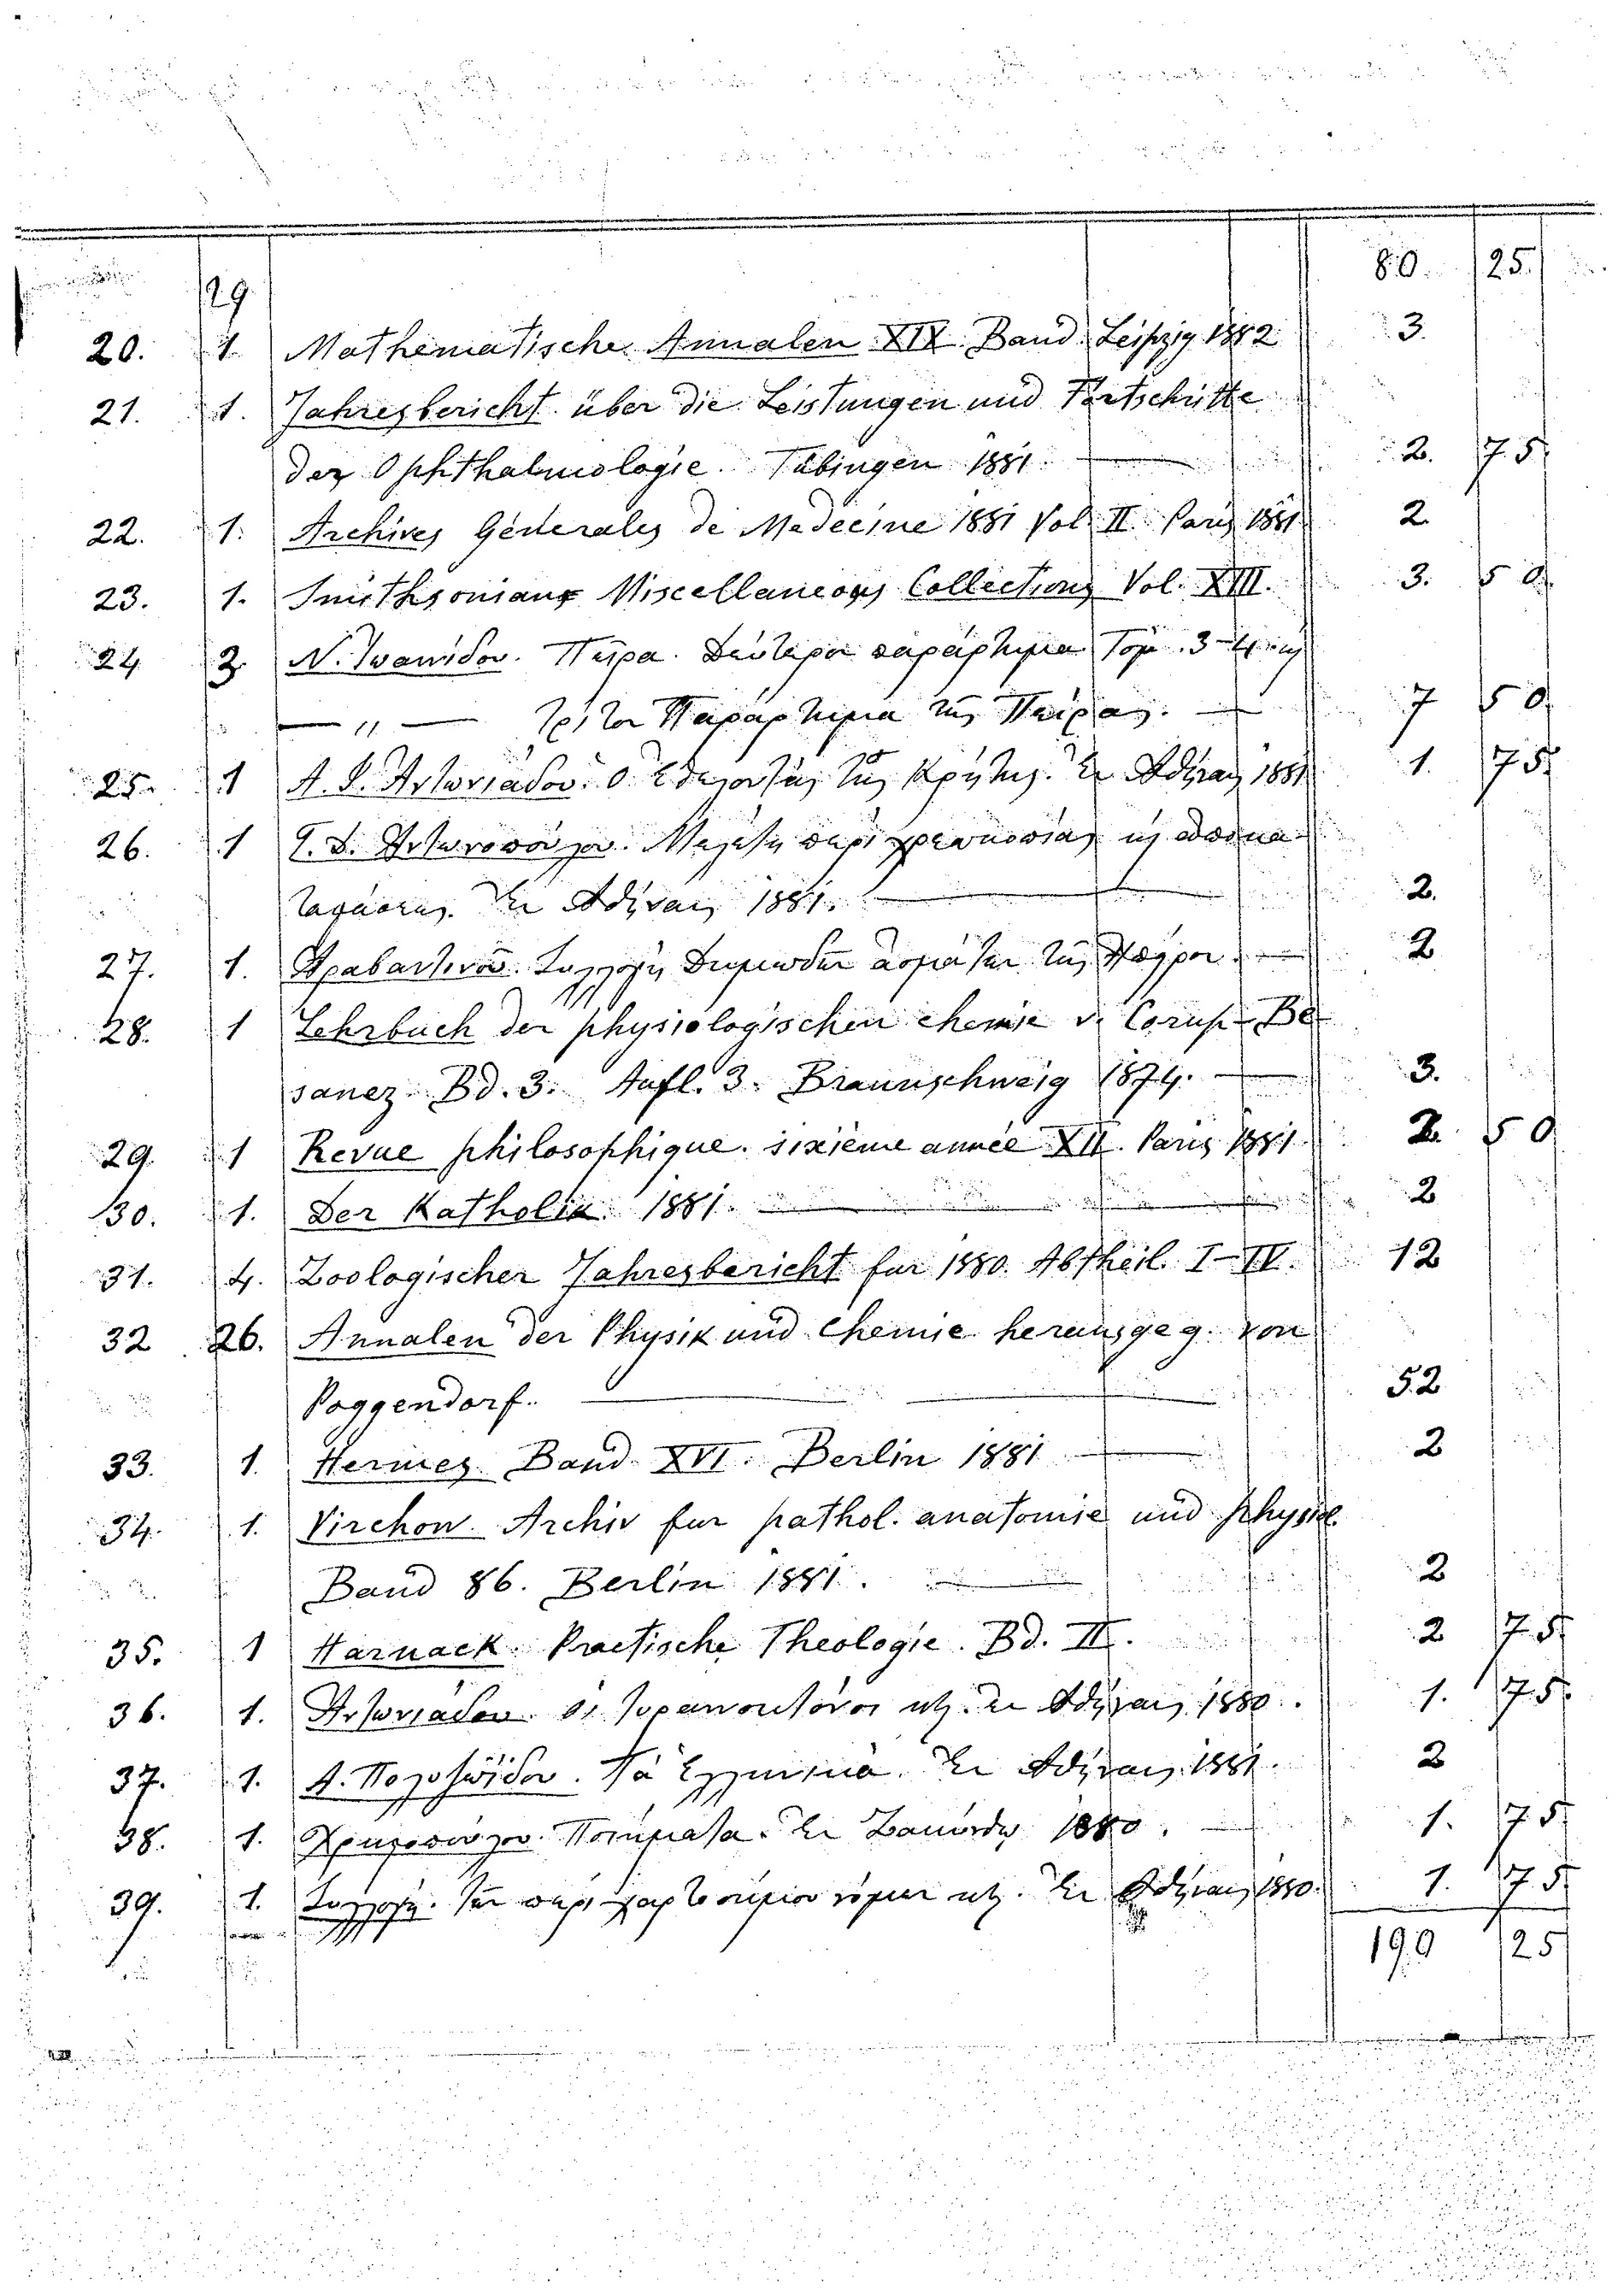 80. 25.
29.
20. 1. Mathematische Annalen XIX. Band. Leipzig 1882 3.
21. 1. Jahresbericht über die Leistungen und Fortschritte
der Ophthalmologie. Tübingen 1881. 2. 75
22. 1. Archives Générales de Medecine 1881 Vol. II. Paris 1881 2.
23. 1. Smithsonians Miscellaneous Collections Vol. XIII. 3. 50
24 3. Ν. Ιωαννίδου. Πείρα. Δεύτερον παράρτημα Τόμ. 3-4
— „ — Τρίτον Παράρτημα τῆς Πείρας. — 7 50
25. 1 Α. Ἀντωνιάδου. Ὁ τῆς Κρήτης. Ἐν Ἀθήναις 1881 1. 75
26. 1 Ἀντωνοπούλου. Μελέτη περὶ
Ἐν Ἀθήναις 1881. 2.
27. 1. Ἀραβαντινοῦ. Συλλογὴ Δημωδῶν ἀσμάτων τῆς Ἠπείρου. — 2
28. 1 Lehrbuch der physiologischen chemie v. Be
sanez. Bd. 3. Aufl. 3. Braunschweig 1874. — 3.
29. 1 Revue philosophique. sixième année XII. Paris 1881 2. 50
30. 1. Der Katholik. 1881. 2
31. 4. Zoologischer Jahresbericht fur 1880. Abtheil. I-IV. 12
32 26. Annalen der Physik und Chemie herausgeg. von
Poggendorf. 52
33. 1. Hermes. Band XVI. Berlin 1881 2
34. 1. Virchow. Archiv fur pathol. anatomie und physiol.
Band 86. Berlin 1881. 2
35. 1 Harnack. Practische Theologie. Bd. II. 2 75
36. 1. Ἀντωνιάδου. Οἱ κτλ. Ἐν Ἀθήναις 1880. 1. 75
37. 1. Τὰ Ἑλληνικά. Ἐν Ἀθήναις 1881. 2
38. 1. Ποιήματα. Ἐν Ζακύνθῳ 1880. 1. 75
39. 1. Συλλογὴ. τῶν περὶ χαρτοσήμου νόμων κτλ. Ἐν Ἀθήναις 1880. 1. 75
190 25